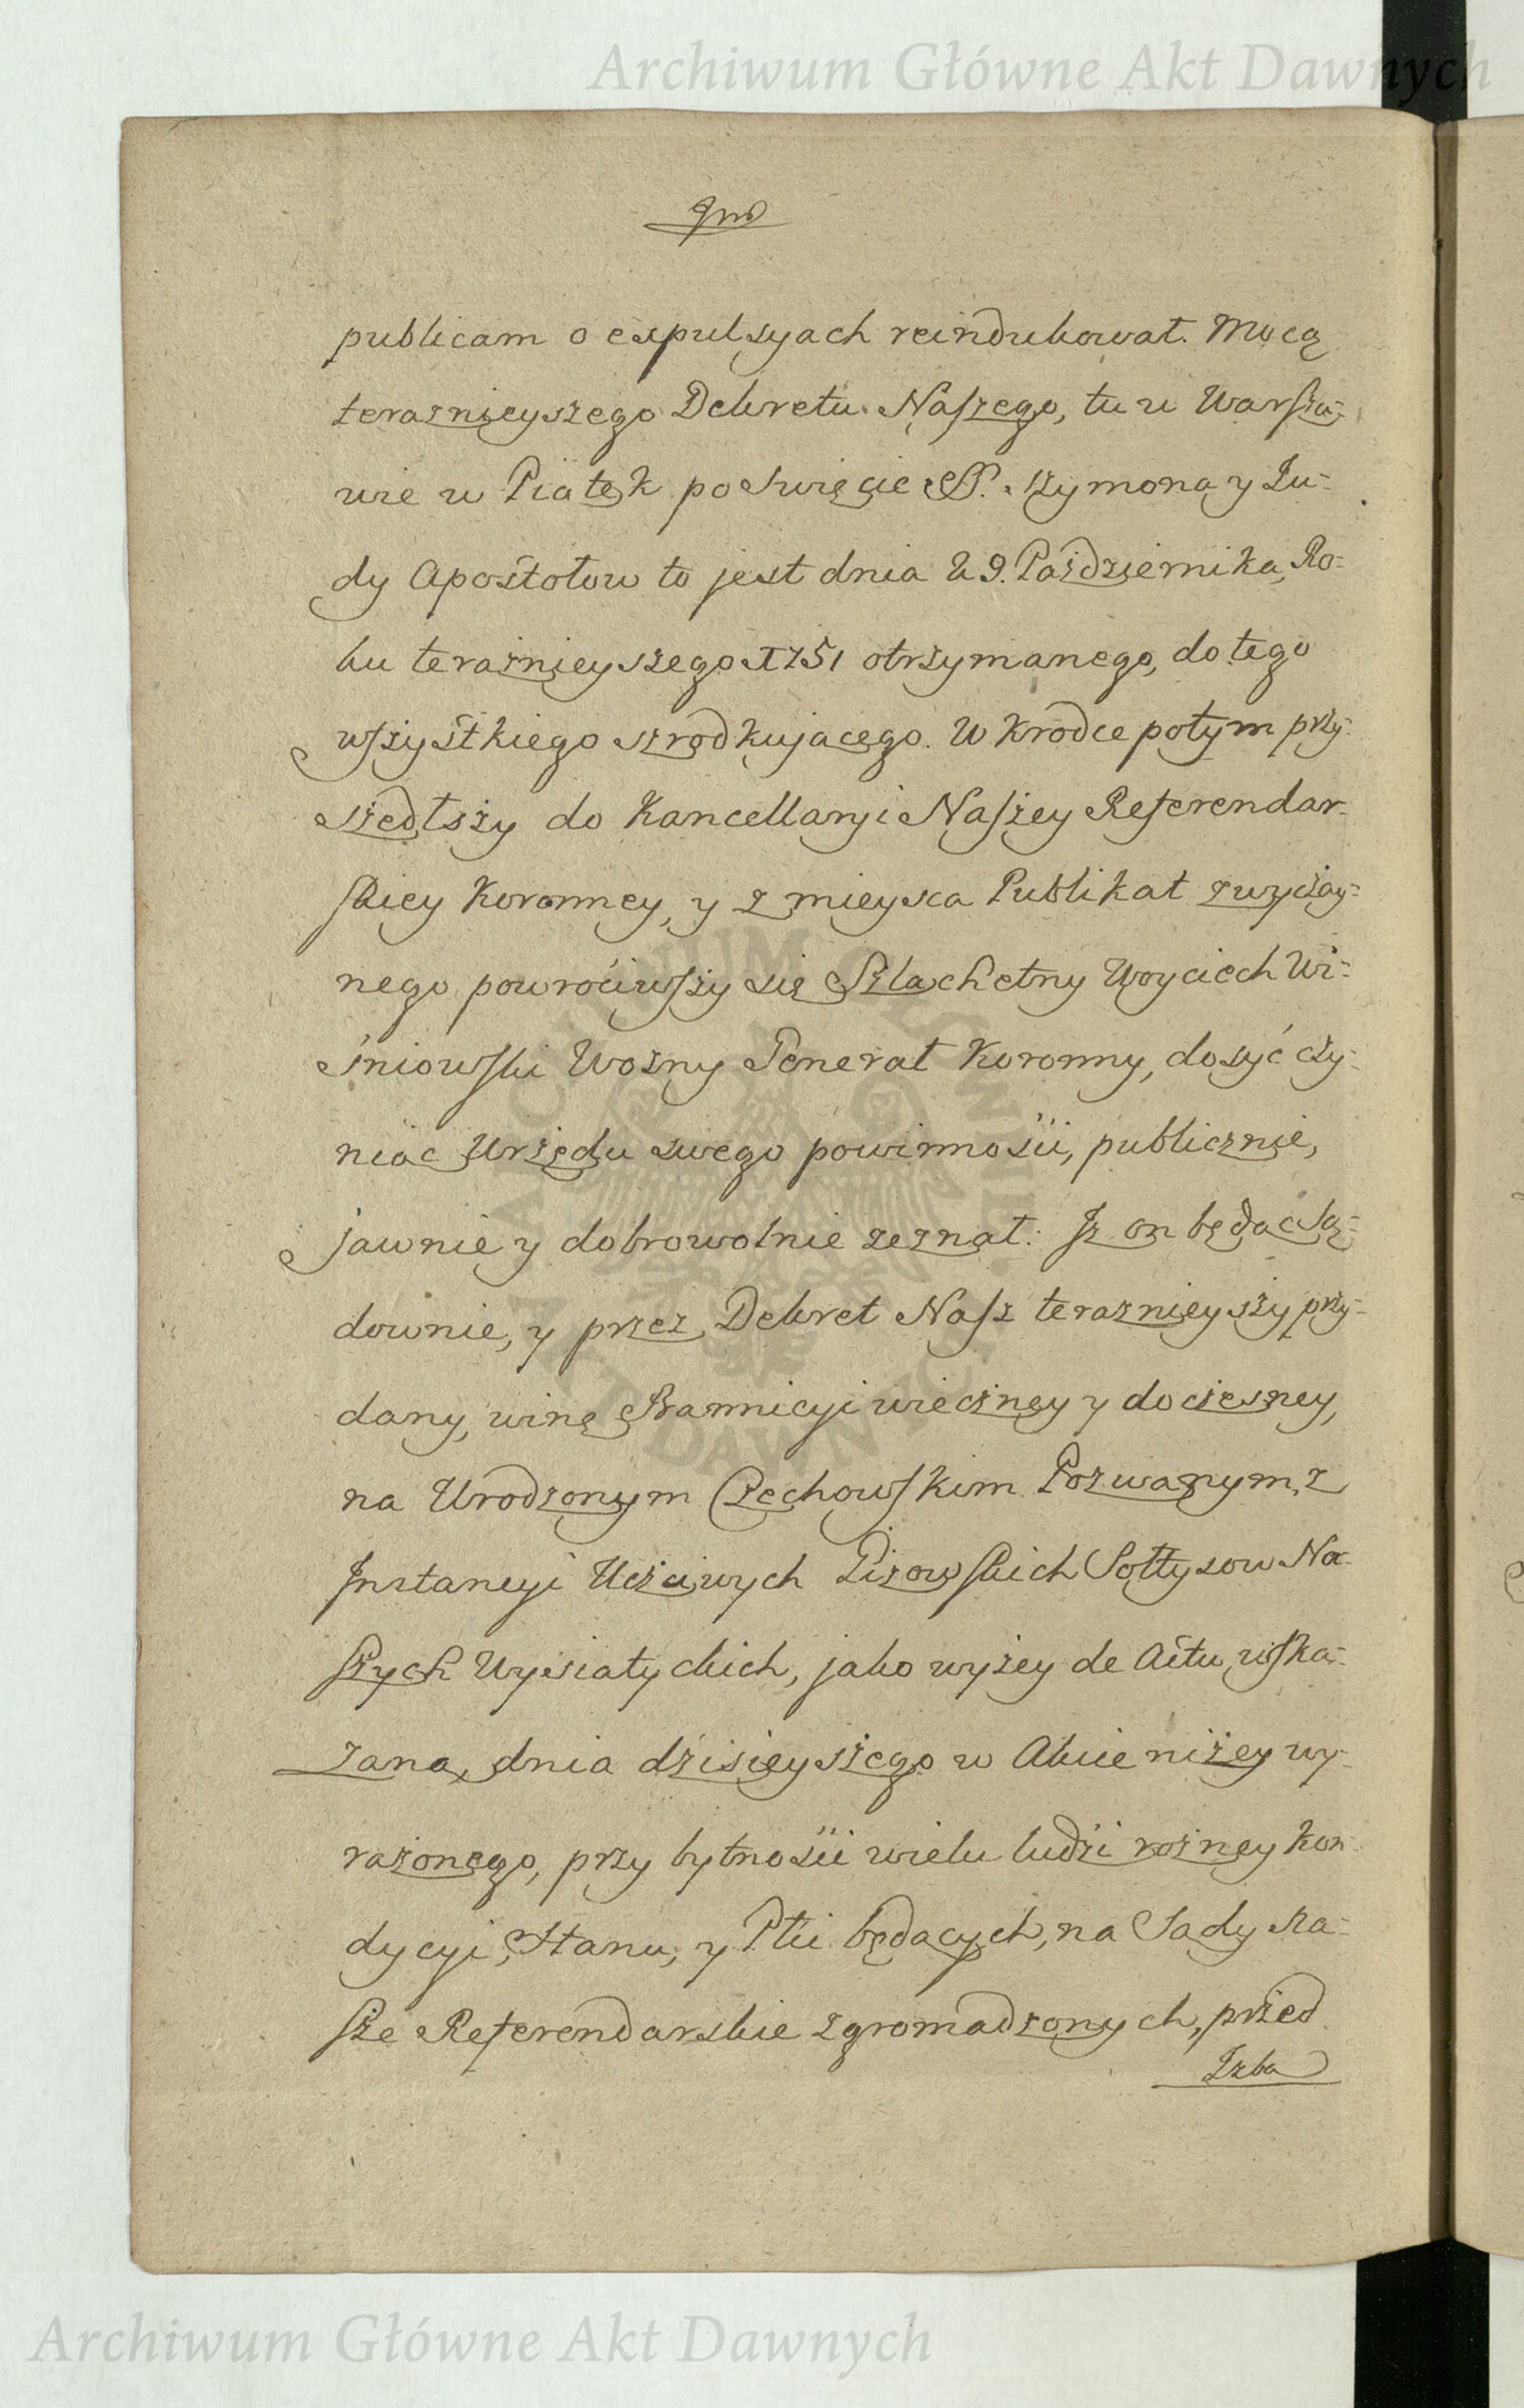 Archiwum Główne Akt Dawnych
publicam o expulsyach reindukował. Mocą
teraznieyszego Dekretu Naszego, tu w Warsza-
wie w Piątek po Swięcie SS. Szymona y Ju-
dy Apostołow to jest dnia 29. Pazdziernika, Ro-
ku teraznieyszego 1751 otrzymanego, do tego
wszystkiego szrodkującego. W krodce potym przy-
szedłszy do Kancellaryi Naszey Referendar-
skiey Koronney, y z mieysca Publikat zwyczay-
nego powrociwszy się Szlachetny Woyciech Wi-
śniowski Wozny Jenerał Koronny, dosyć czy-
niąc Urzędu swego powinnosci, publicznie,
jawnie y dobrowolnie zeznał: Iz on będąc Są-
downie, y przez Dekret Nasz teraznieyszy przy-
dany, winę Bannicyi wieczney y doczesney,
na Urodzonym Czechowskim Pozwanym, z
Instancyi Uczciwych Lizowskich Sołtysow Na-
szych Wysiatyckich, jako wyżey de Actu wska-
zaną, dnia dzisieyszego w Akcie niżey wy-
rażonego, przy bytnosci wielu ludzi rożney kon-
dycyi, Stanu, y Płci będących, na Sądy Na-
sze Referendarskie zgromadzonych, przed
Izbą
Archiwum Główne Akt Dawnych